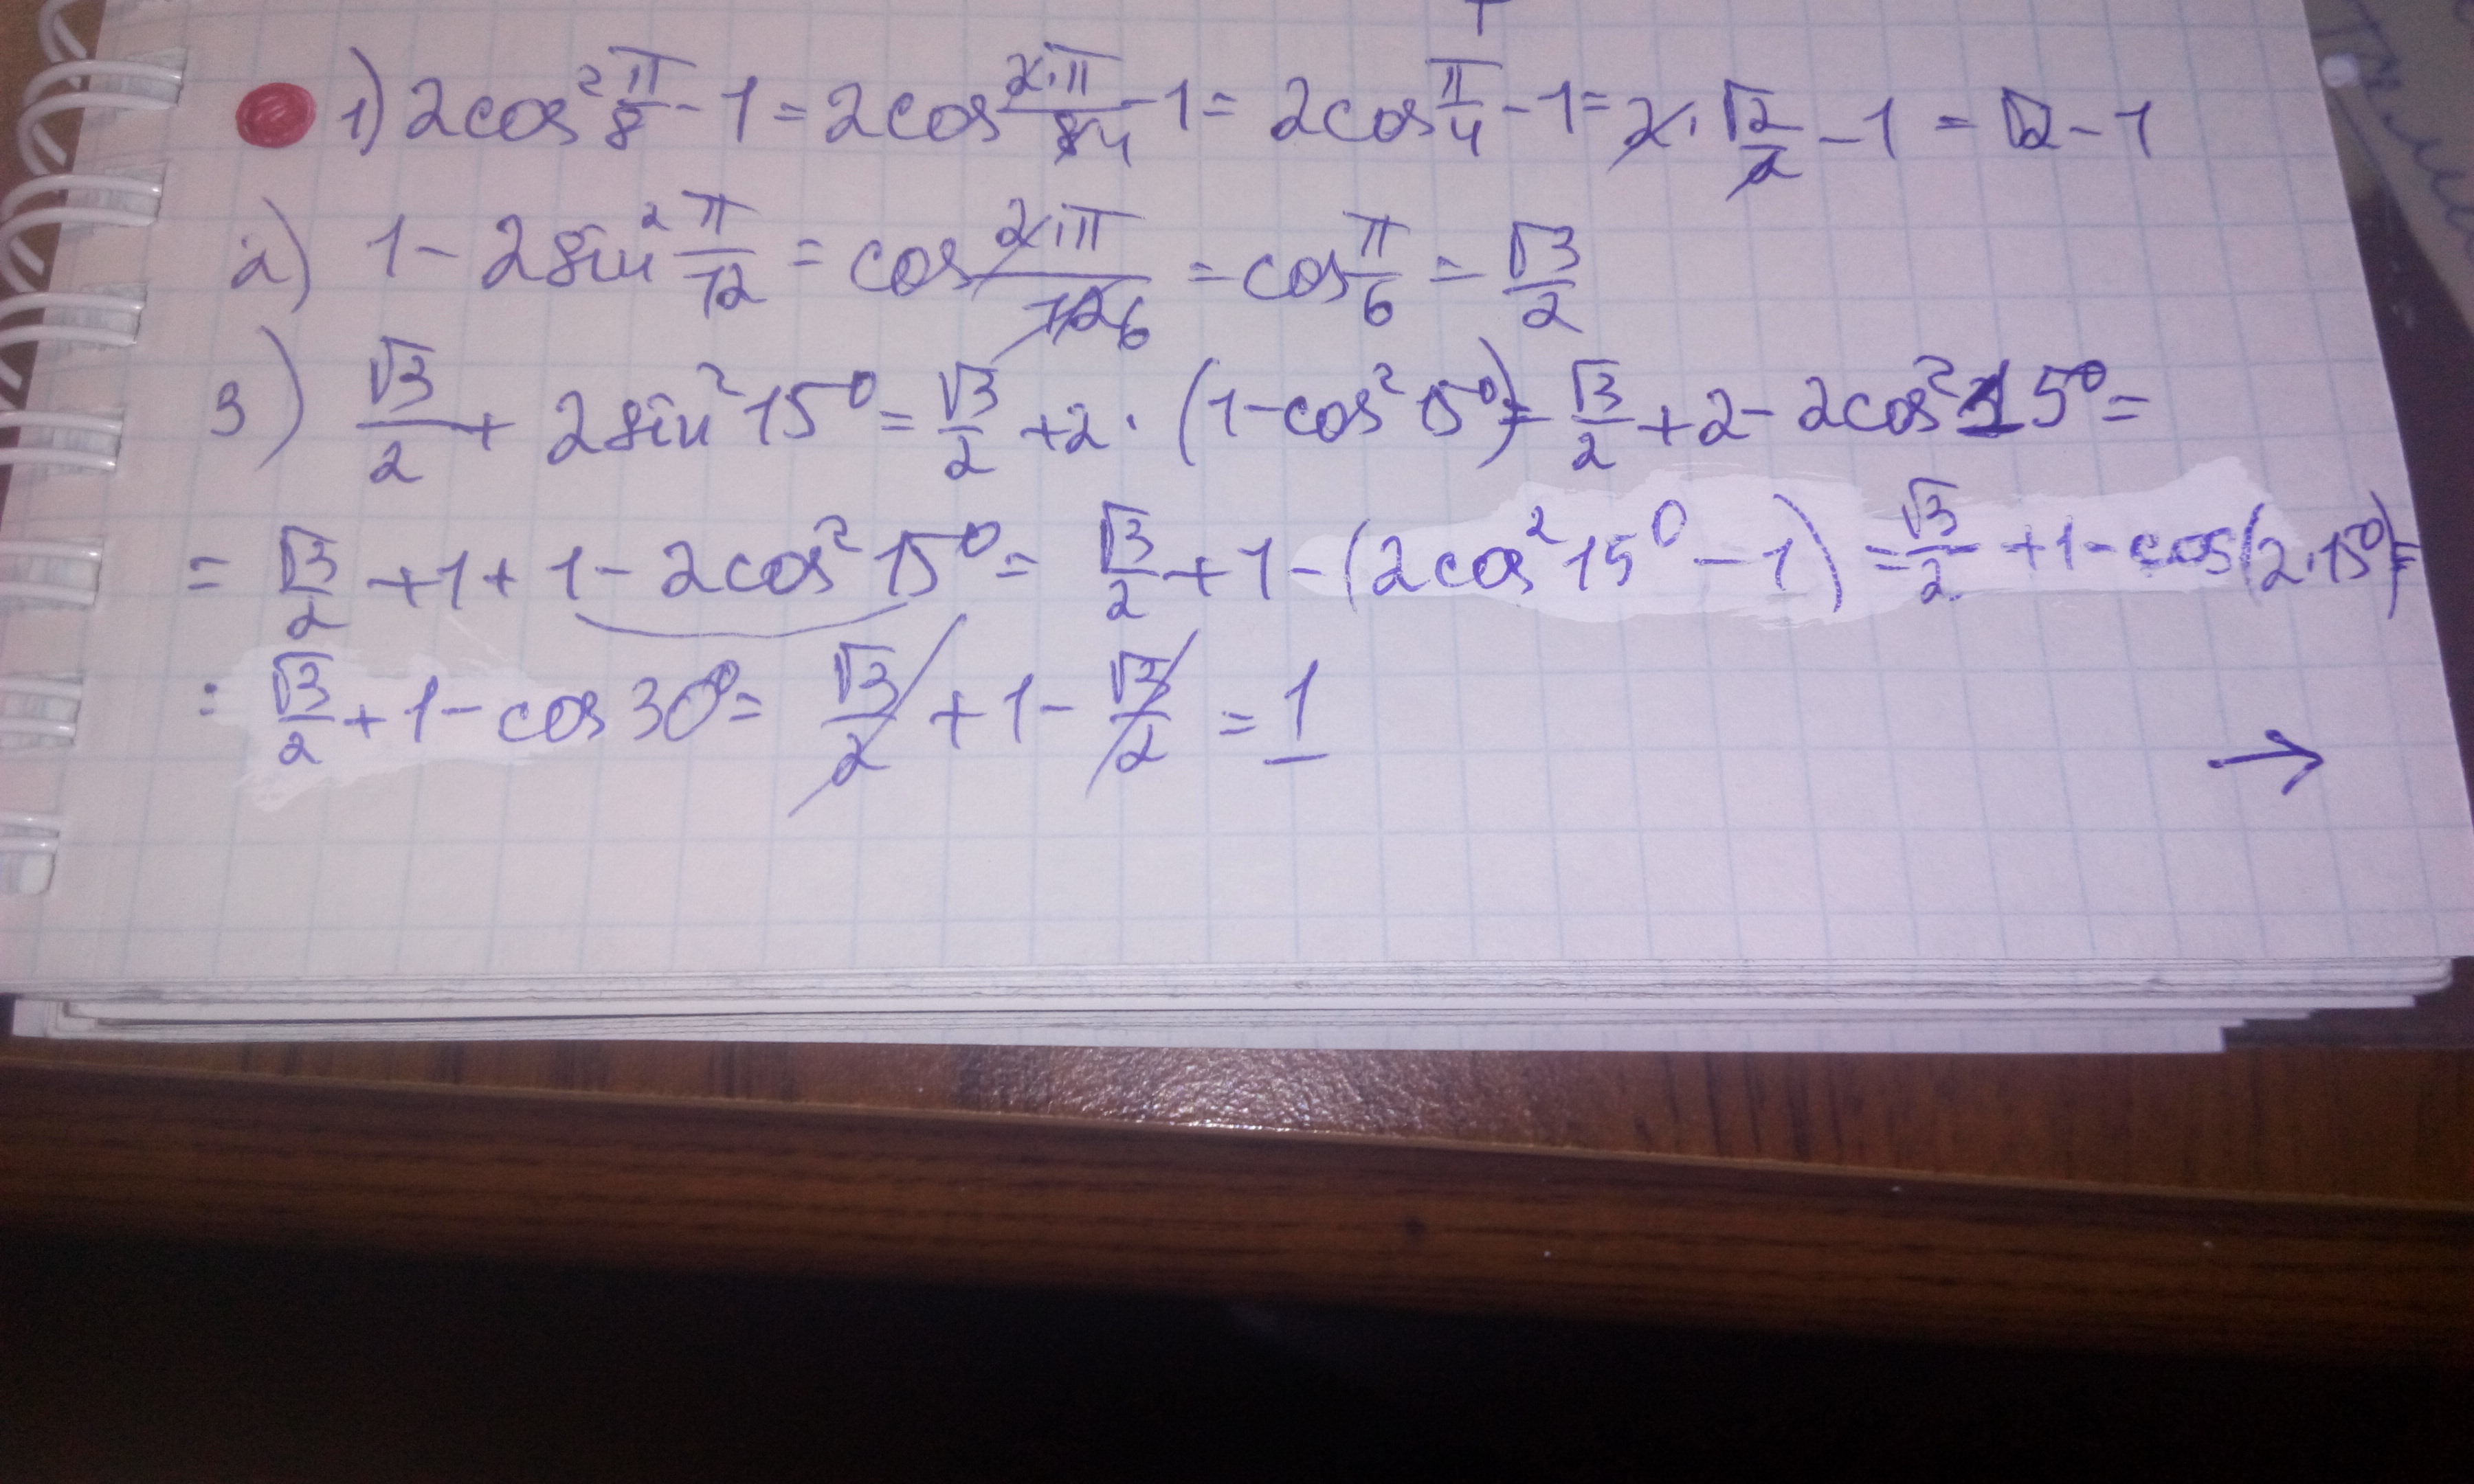 1) 2cos² π/8 - 1 = 2cos 2·π/84 - 1 = 2cos π/4 - 1 = 2 · √2/2 - 1 = √2 - 1
2) 1 - 2sin² π/12 = cos 2·π/126 = cos π/6 = √3/2
3) √3/2 + 2sin² 15° = √3/2 + 2 · (1 - cos² 15°) = √3/2 + 2 - 2cos² 15° =
= √3/2 + 1 + 1 - 2cos² 15° = √3/2 + 1 - (2cos² 15° - 1) = √3/2 + 1 - cos(2·15°) =
= √3/2 + 1 - cos 30° = √3/2 + 1 - √3/2 = 1
→